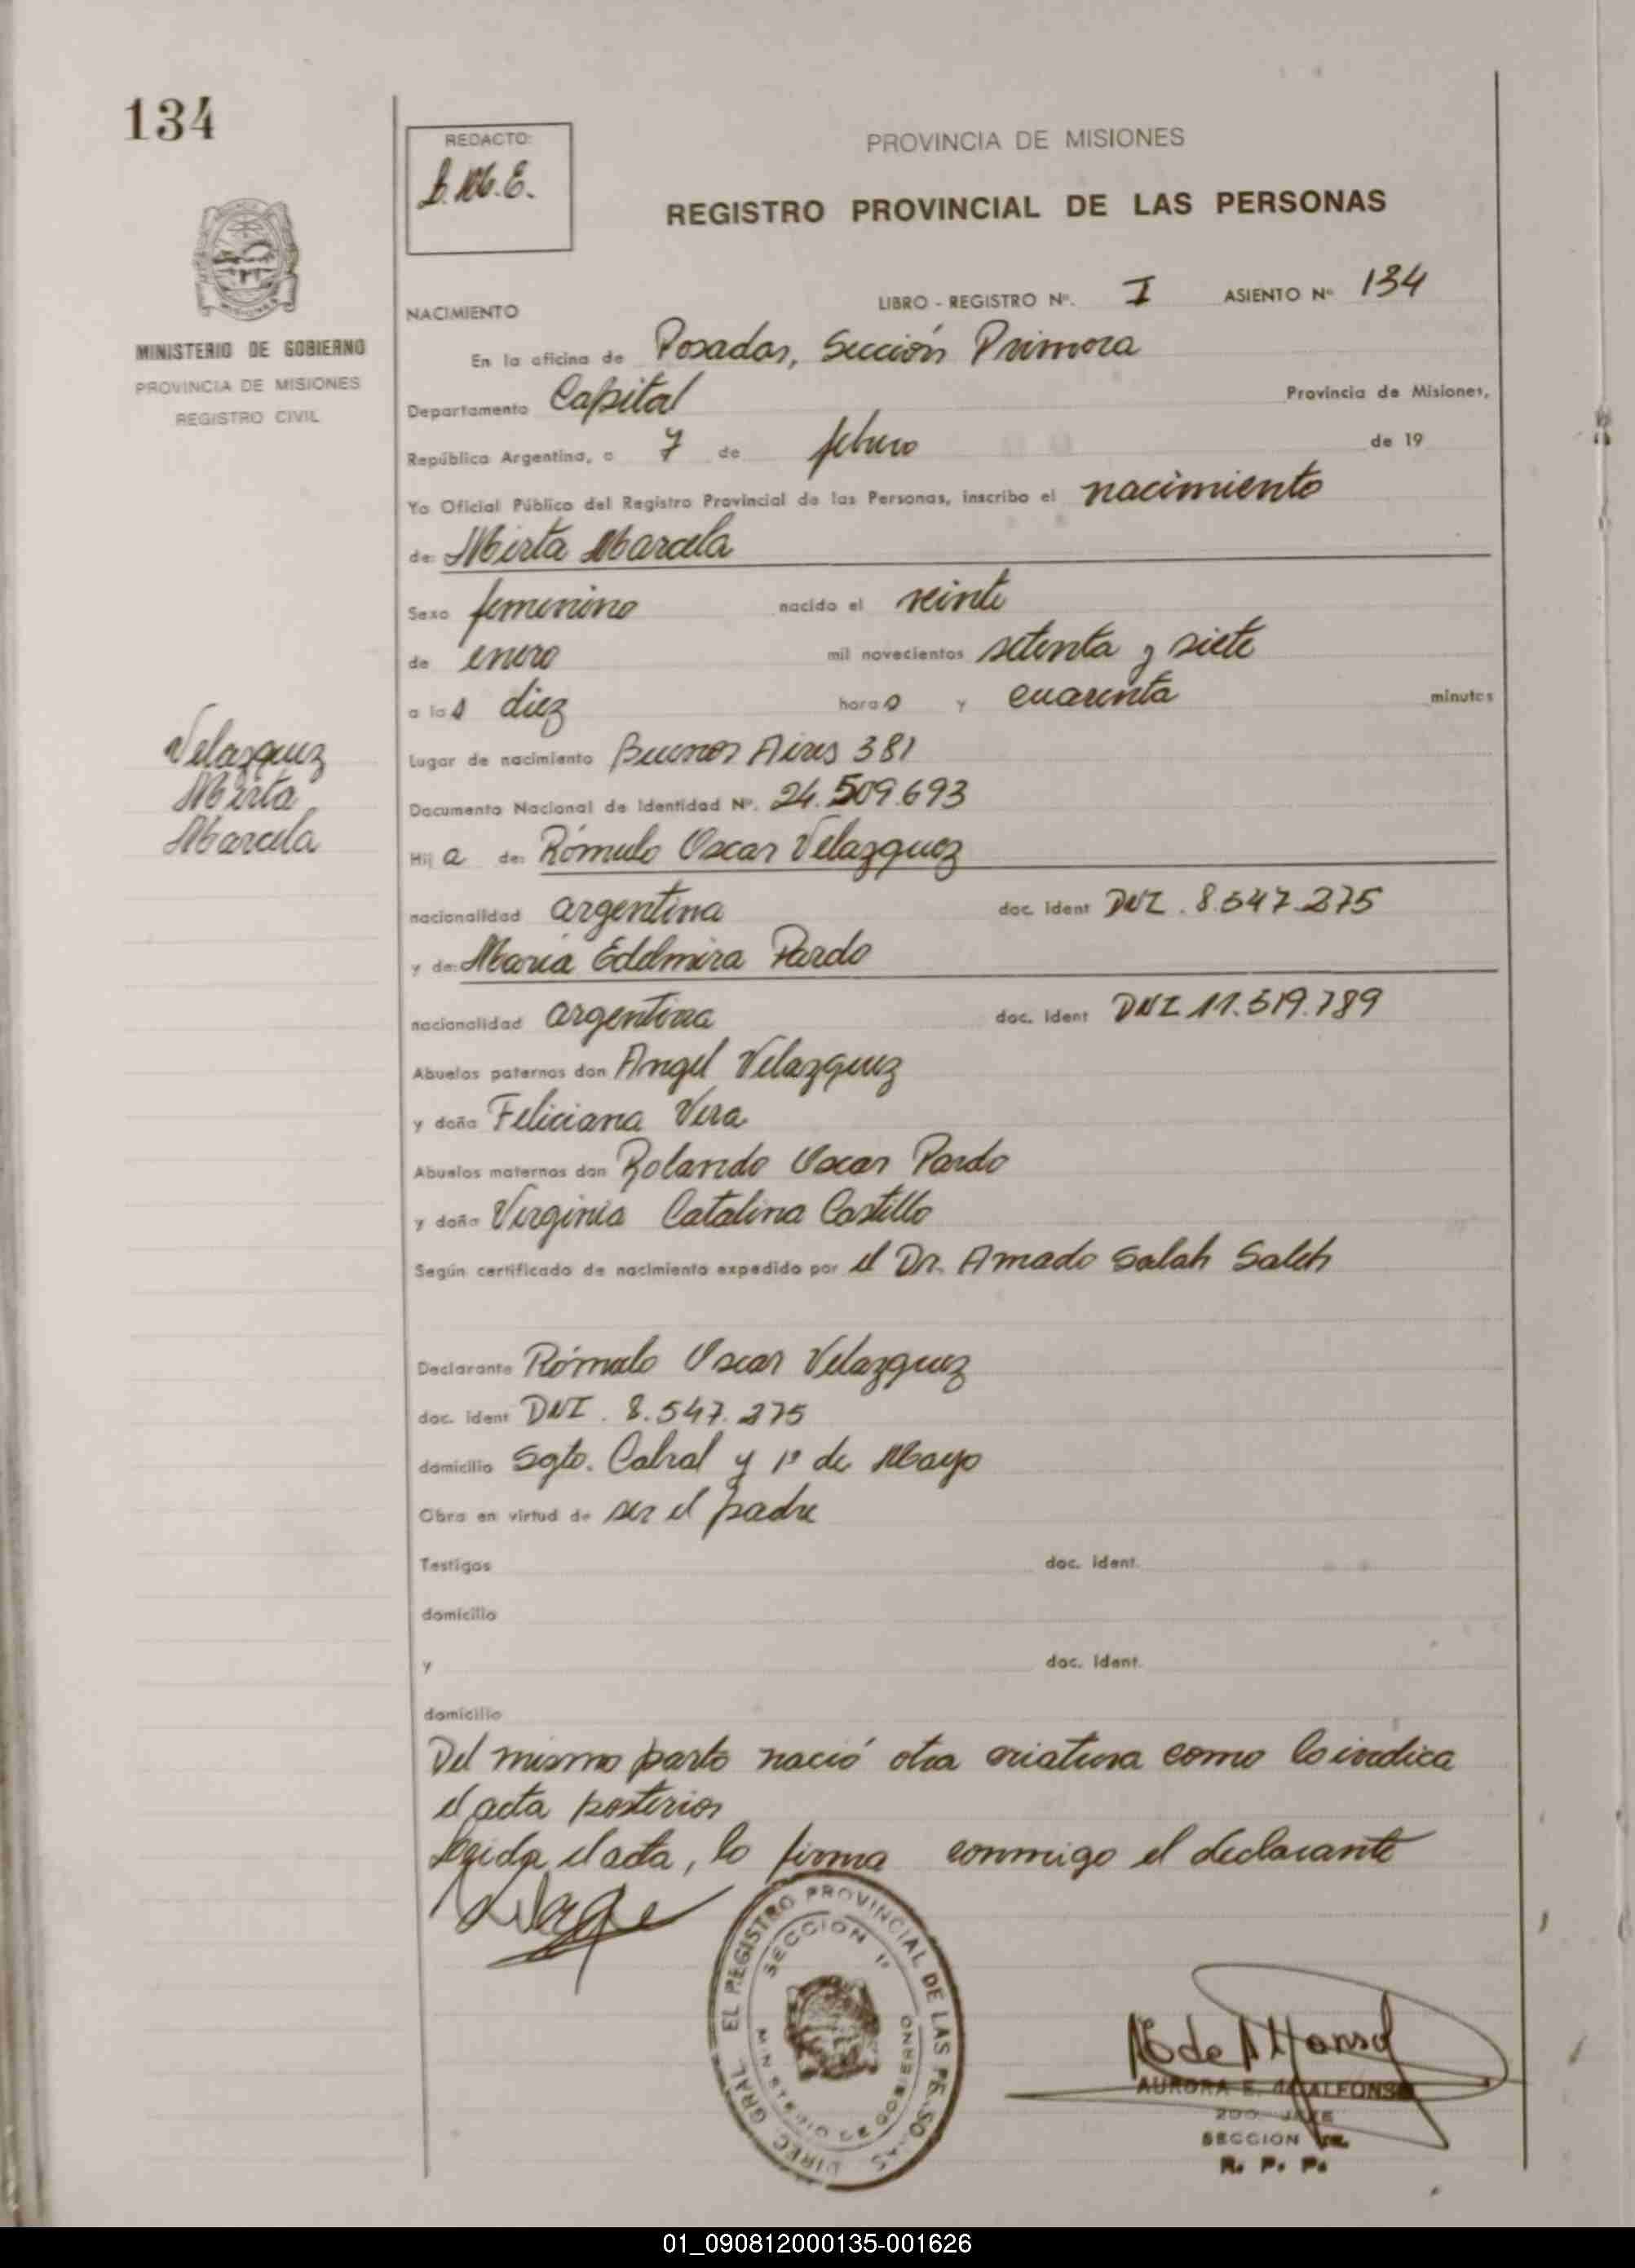 134
REDACTO:
PROVINCIA DE MISIONES
REGISTRO PROVINCIAL DE LAS PERSONAS
MINISTERIO DE GOBIERNO
PROVINCIA DE MISIONES
REGISTRO CIVIL
NACIMIENTO
LIBRO - REGISTRO Nº. I ASIENTO Nº 134
En la oficina de Posadas, Sección Primera
Departamento Capital Provincia de Misiones,
República Argentina, a 7 de febrero de 19
Yo Oficial Público del Registro Provincial de las Personas, inscribo el nacimiento
de: Mirta Marcela
Sexo femenino nacido el veinte
de enero mil novecientos setenta y siete
a las diez horas y cuarenta minutos
Velazquez
Mirta
Marcela
Lugar de nacimiento Buenos Aires 381
Documento Nacional de Identidad Nº. 24.509.693
Hija de: Rómulo Oscar Velazquez
nacionalidad argentina doc. ident DNI. 8.547.275
y de: María Edelmira Pardo
nacionalidad argentina doc. ident DNI 11.519.789
Abuelos paternos don Angel Velazquez
y doña Feliciana Vera
Abuelos maternos don Rolando Oscar Pardo
y doña Virginia Catalina Castillo
Según certificado de nacimiento expedido por el Dr. Amado Salah Saleh
Declarante Rómulo Oscar Velazquez
doc. ident DNI. 8.547.275
domicilio Sgto. Cabral y 1º de Mayo
Obra en virtud de ser el padre
Testigos doc. ident.
domicilio
y doc. ident.
domicilio
Del mismo parto nació otra criatura como lo indica
el acta posterior
Leida el acta, lo firma conmigo el declarante
DIREC. GRAL. EL REGISTRO PROVINCIAL DE LAS PERSONAS
SECCION 1ª
MINISTERIO DE GOBIERNO
AURORA E. de ALFONSO
2DO. JEFE
SECCION 1ra.
R. P. P.
01_090812000135-001626